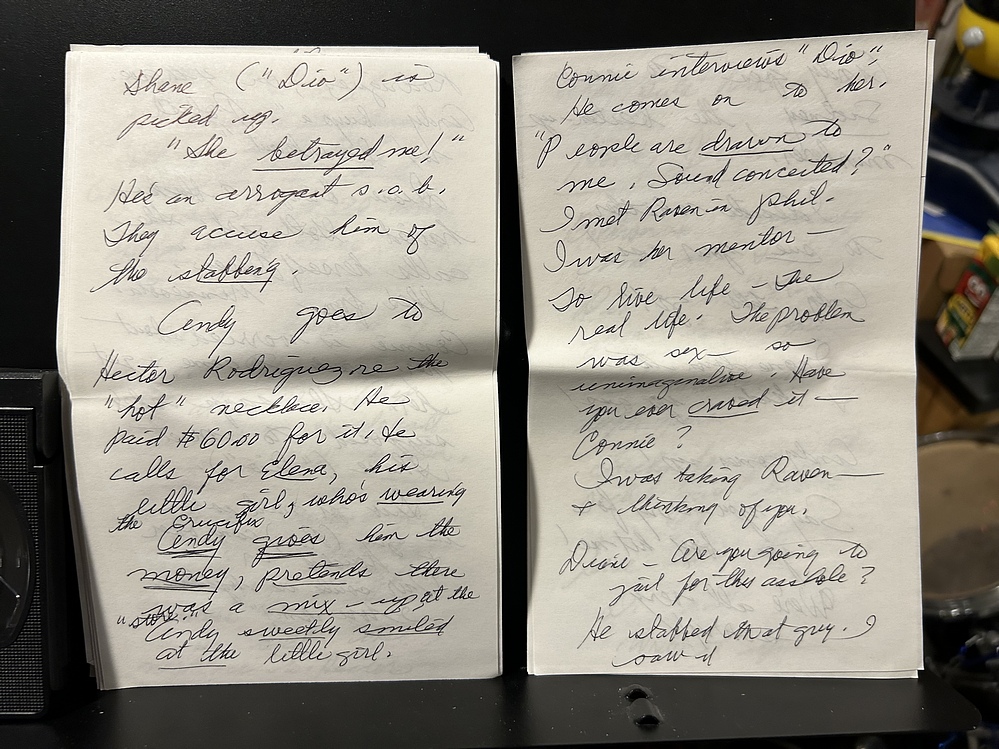 Shane ("Dio") is
picked up.
"She betrayed me!"
He's an arrogant s.o.b.
They accuse him of
the stabbing.
Candy goes to
Hector Rodriguez re the
"hot" necklace. He
paid $60.00 for it. He
calls for Elena, his
little girl, who's wearing
the Crucifix
Candy gives him the
money, pretends there
was a mix-up at the
"store."
Candy sweetly smiled
at the little girl.
Connie interviews "Dio".
He comes on to her.
"People are drawn to
me. Sound conceited?"
I met Raven in Phil.
I was her mentor —
To live life — The
real life. The problem
was sex — so
unimaginative. Have
you ever craved it —
Connie?
I was taking Raven —
+ thinking of you.
Diane — Are you going to
jail for this asshole?
He stabbed that guy. I
saw it